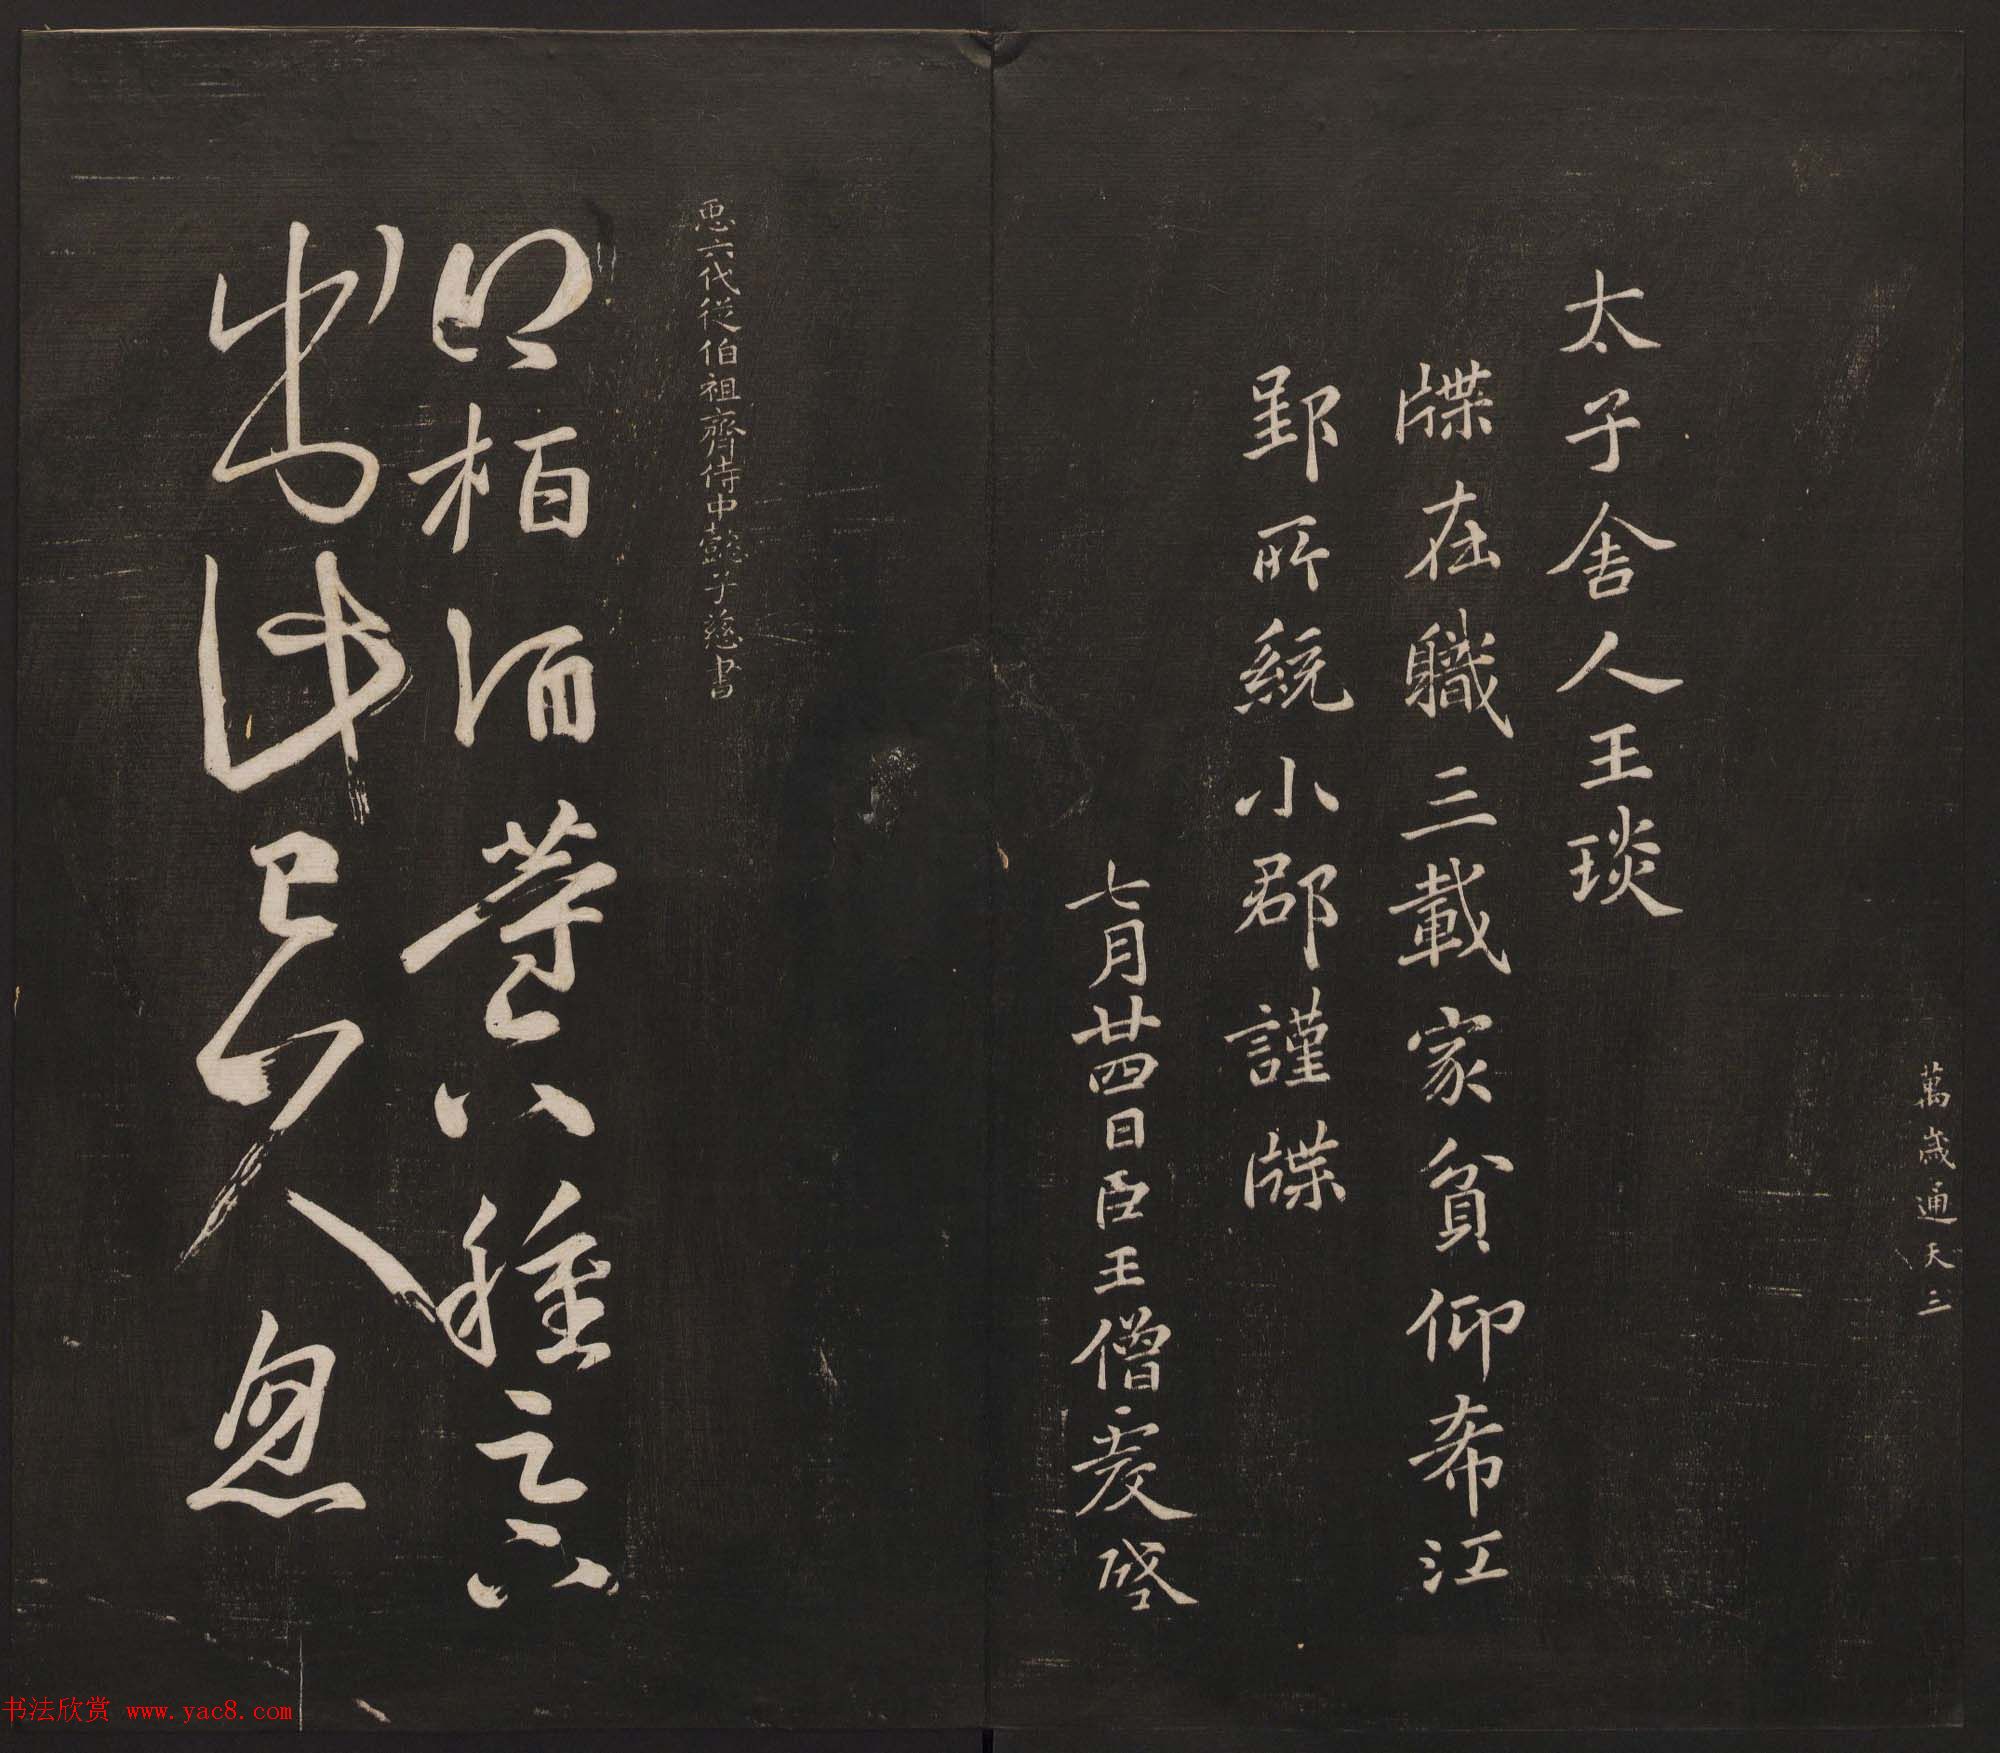 萬歲通天三
太子舍人王琰
牒在職三載家貧仰希江
郢所統小郡謹牒
七月廿四日臣王僧虔啓
𢘑六代從伯祖齊侍中懿子慈書
得栢酒等六種足下
出此已久忽
书法欣赏 www.yac8.com